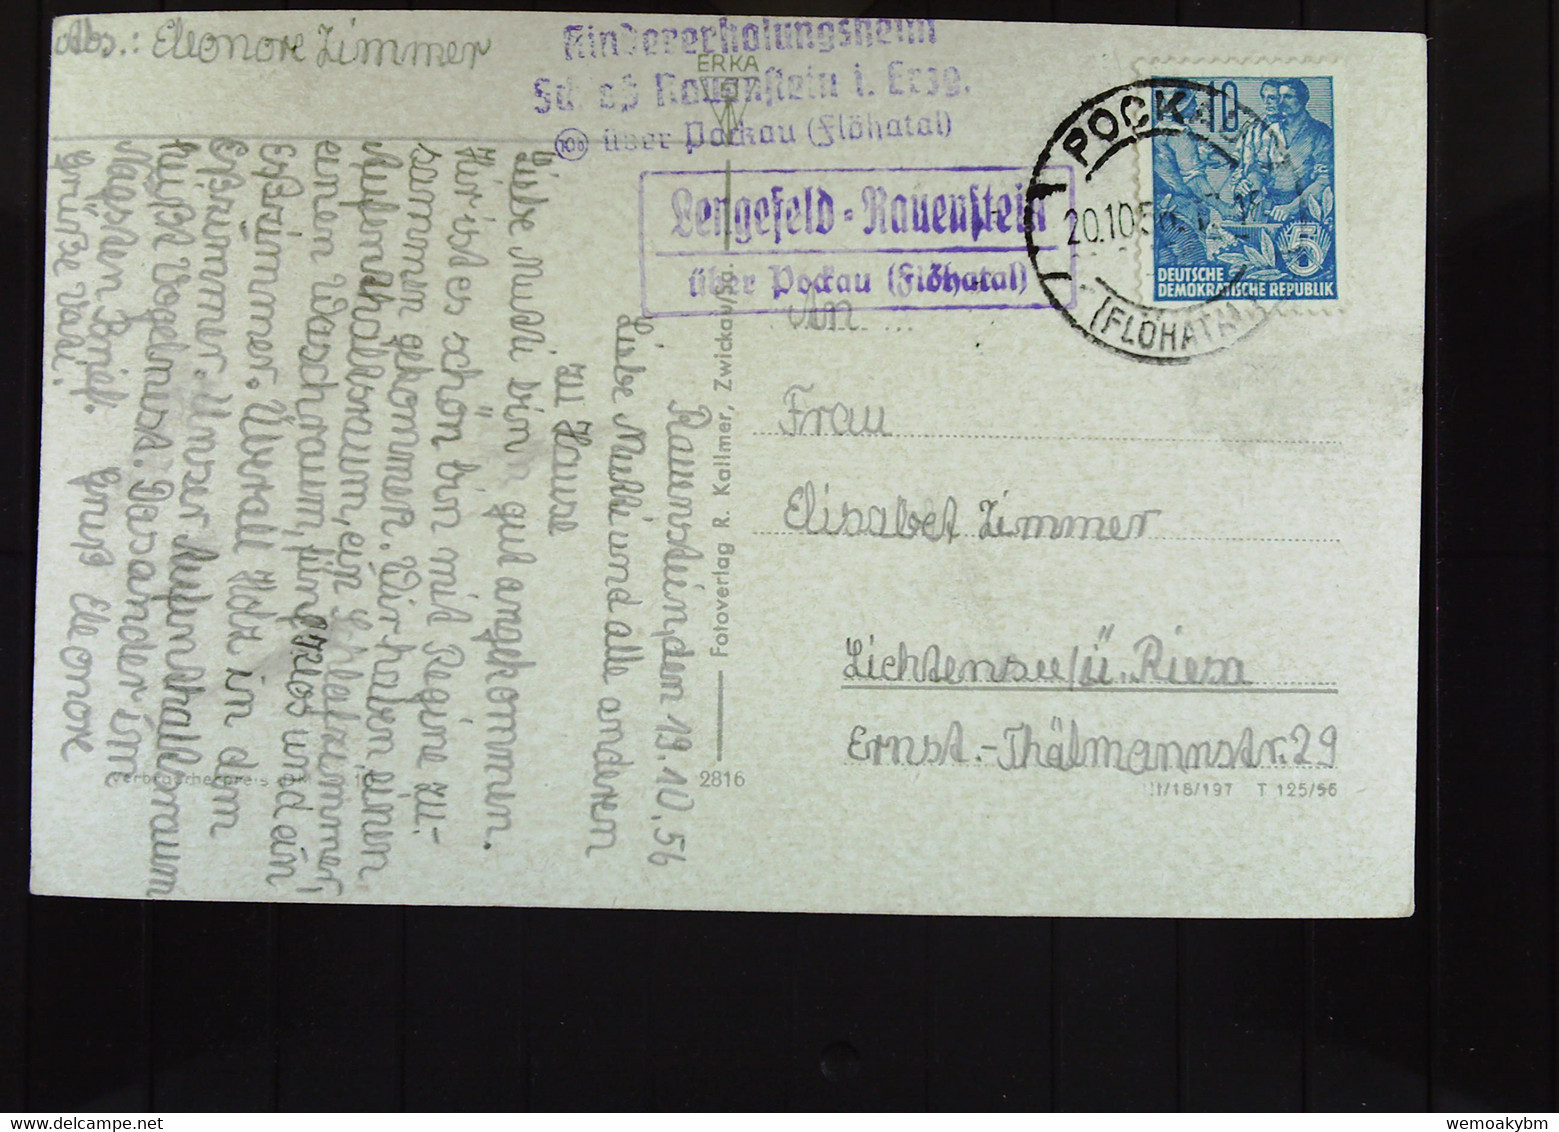 Abs.: Eleonore Zimmer
Kindererholungsheim
Schloß Rauenstein i. Erzg.
10b über Pockau (Flöhatal)
ERKA
Lengefeld-Rauenstein
über Pockau (Flöhatal)
POCKAU
20.10.56
(FLÖHATAL)
10
5
DEUTSCHE
DEMOKRATISCHE REPUBLIK
An
Frau
Elisabet Zimmer
Lichtensee/ü. Riesa
Ernst.-Thälmannstr. 29
III/18/197 T 125/56
2816
Fotoverlag R. Kallmer, Zwickau/Sa.
Verbraucherpreis DM
den 19.10.56
Liebe Mutti und alle anderen
zu Hause
Liebe Mutti bin gut angekommen.
Hir ist es schön bin mit Regine zu-
samm gekommen. Wir haben einen
Aufenthaltsraum, ein Schlafzimmer,
einen Waschraum, und ein
Eßzimmer. Überall Holz in dem
Eßzimmer. Unser Aufenthaltsraum
heißt Vogelnest. Das andere im
nächsten Brief. Gruß Eleonore
Grüße Vati!